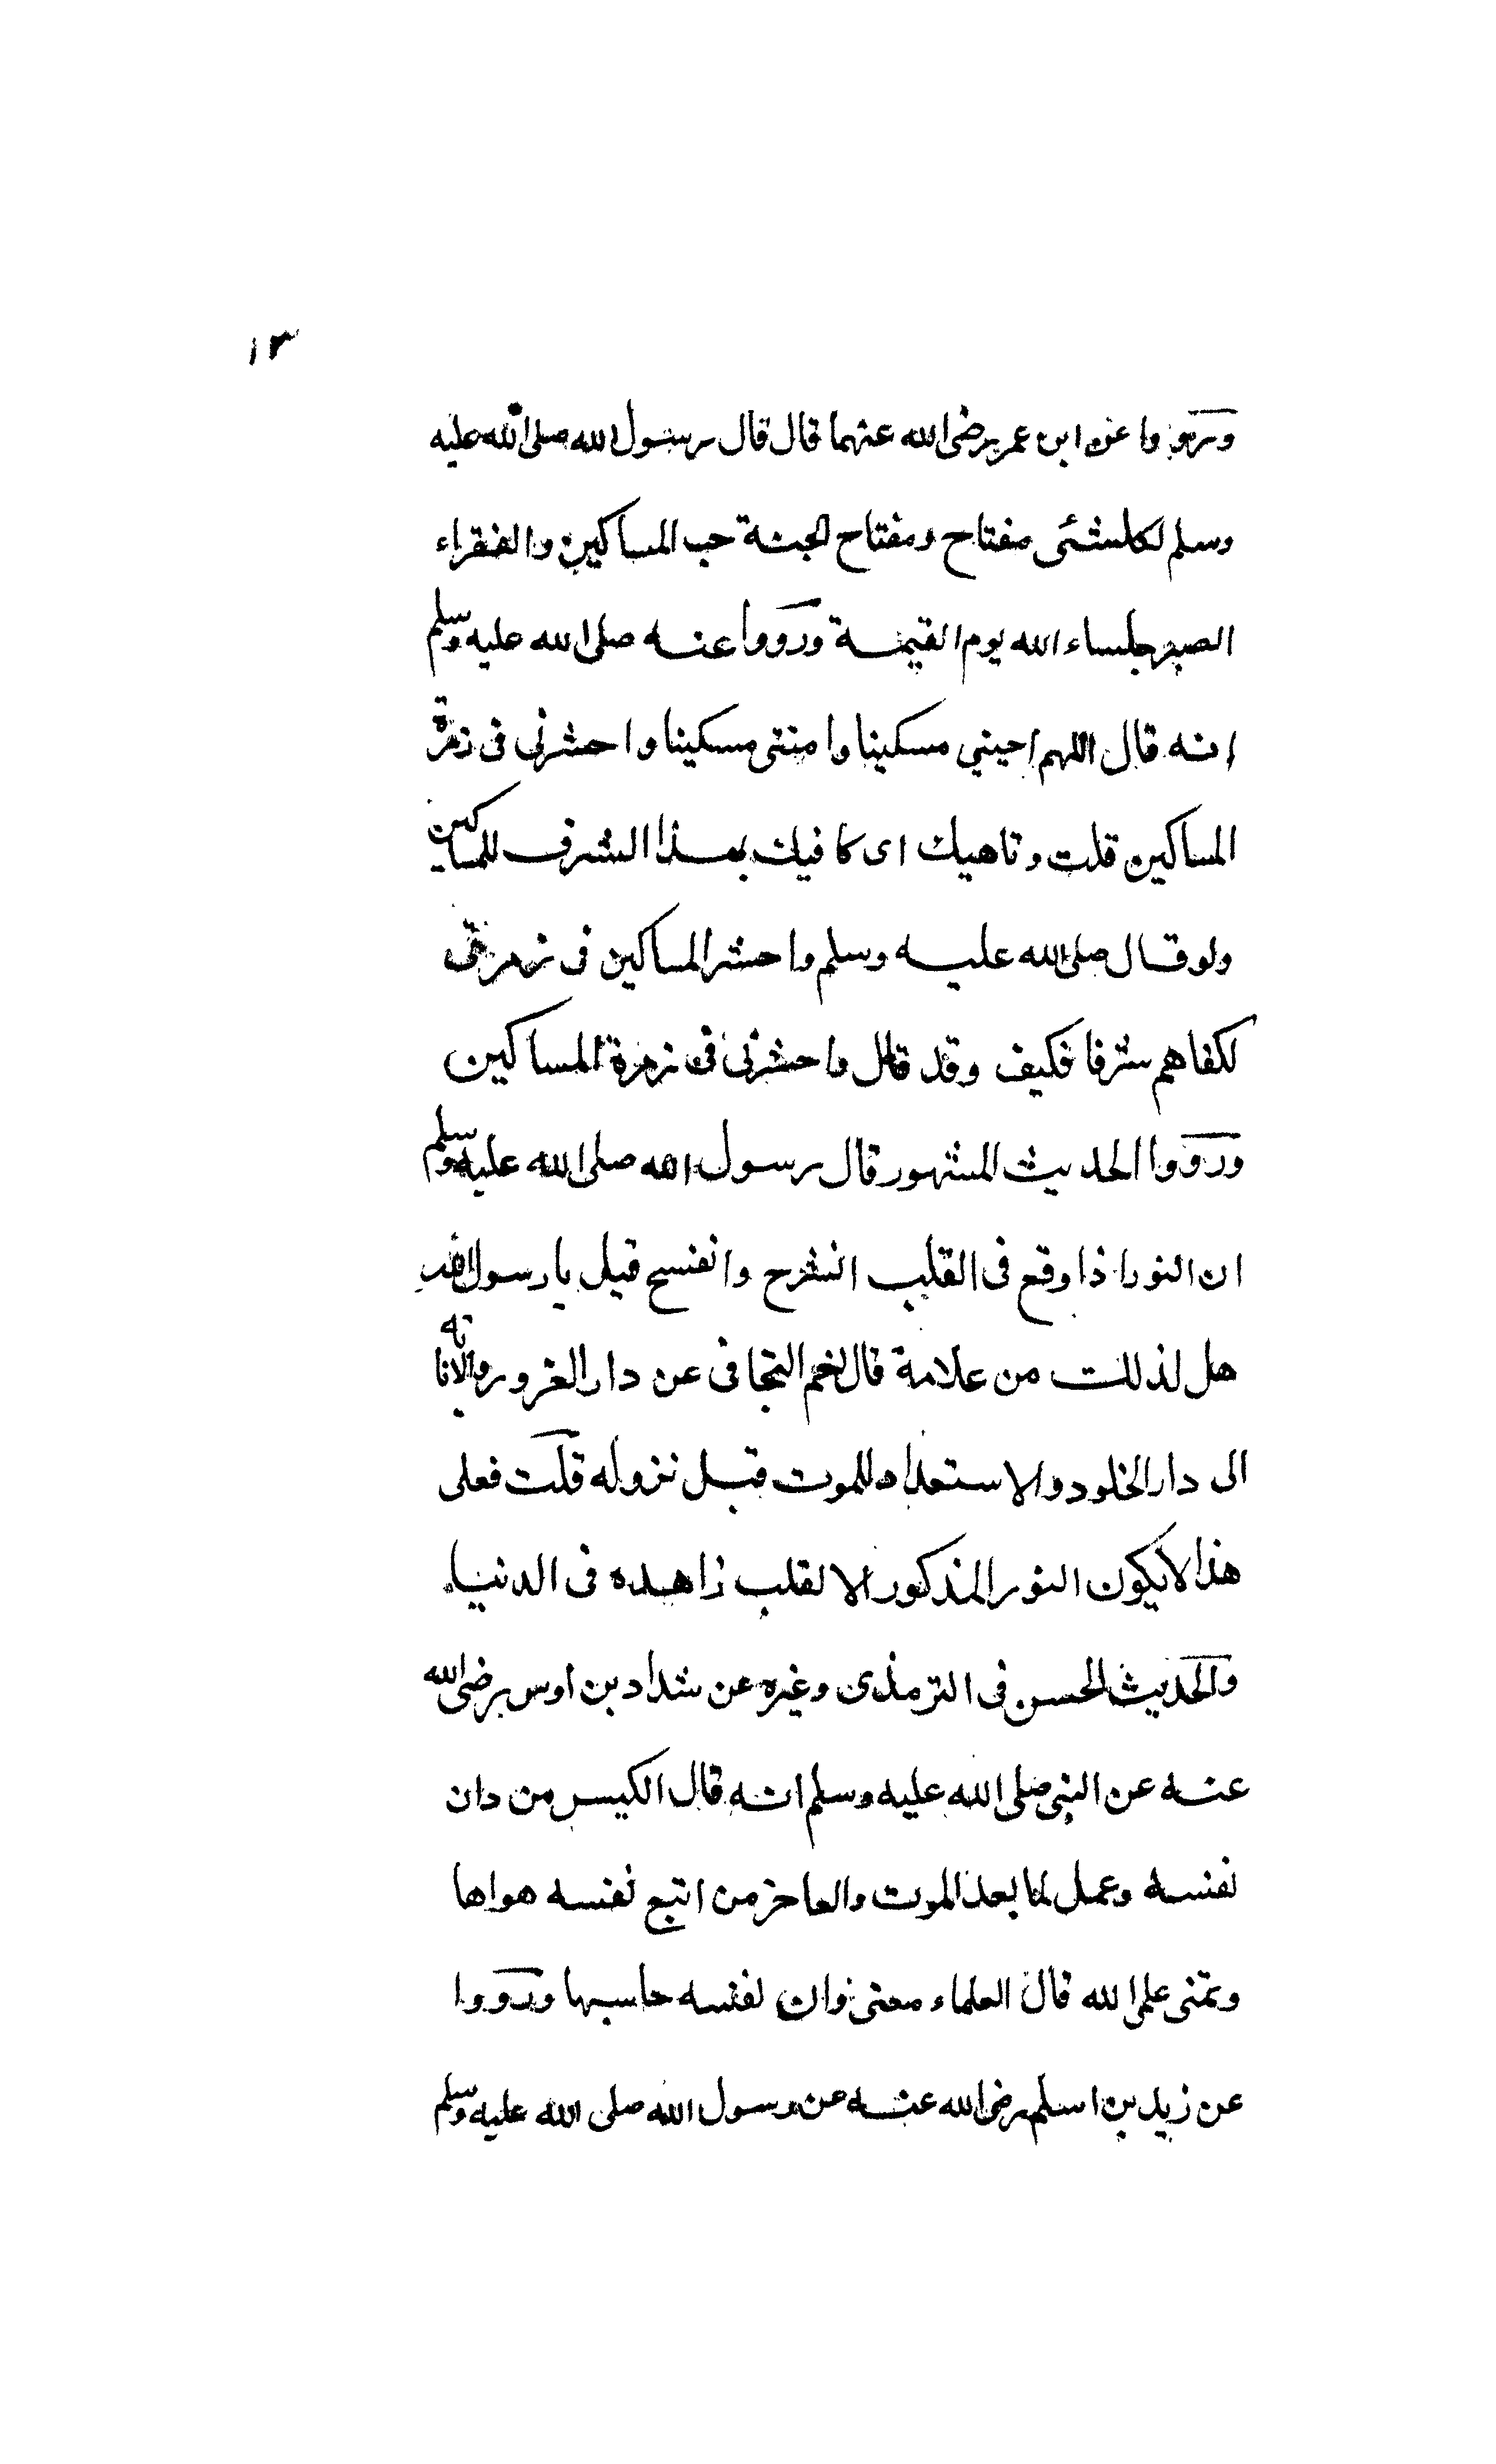 ١٣
ورووا عن ابن عمر رضى الله عنهما قال قال رسول الله صلى الله عليه
وسلم لكل شئى مفتاح ومفتاح الجنة حب المساكين والفقراء
الصبر جلساء الله يوم القيمة ورووا عنه صلى الله عليه وسلم
انه قال اللهم احينى مسكينا وامتنى مسكينا واحشرنى فى زمرة
المساكين قلت وناهيك اى كافيك بهذا الشرف للمساكين
ولو قال صلى الله عليه وسلم واحشر المساكين فى زمرتى
لكفاهم شرفا فكيف وقد قال واحشرنى فى زمرة المساكين
ورووا الحديث المشهور قال رسول الله صلى الله عليه وسلم
ان النور اذا وقع فى القلب انشرح وانفسح قيل يا رسول الله
هل لذلك من علامة قال نعم التجافى عن دار الغرور والانابة
الى دار الخلود والاستعداد للموت قبل نزوله قلت فعلى
هذا لا يكون النور المذكور الا لقلب زاهده فى الدنيا
والحديث الحسن فى الترمذى وغيره عن شداد بن اوس رضى الله
عنه عن النبى صلى الله عليه وسلم انه قال الكيس من دان
نفسه وعمل لما بعد الموت والعاجز من اتبع نفسه هواها
وتمنى على الله قال العلماء معنى دان نفسه حاسبها ورووا
عن زيد بن اسلم رضى الله عنه عن رسول الله صلى الله عليه وسلم